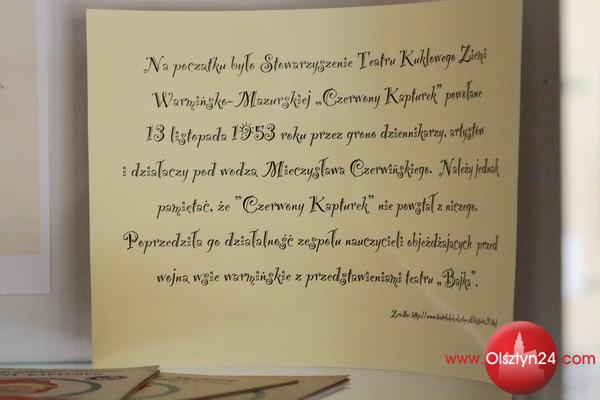 Na początku było Stowarzyszenie Teatru Kukłowego Ziemi
Warmińsko-Mazurskiej „Czerwony Kapturek” powołane
13 listopada 1953 roku przez grono dziennikarzy, artystów
i działaczy pod wodzą Mieczysława Czerwińskiego. Należy jednak
pamiętać, że ”Czerwony Kapturek” nie powstał z niczego.
Poprzedziła go działalność zespołu nauczycieli objeżdżających przed
wojną wsie warmińskie z przedstawieniami teatru „Bajka”.
Źródło:
www.Olsztyn24.com